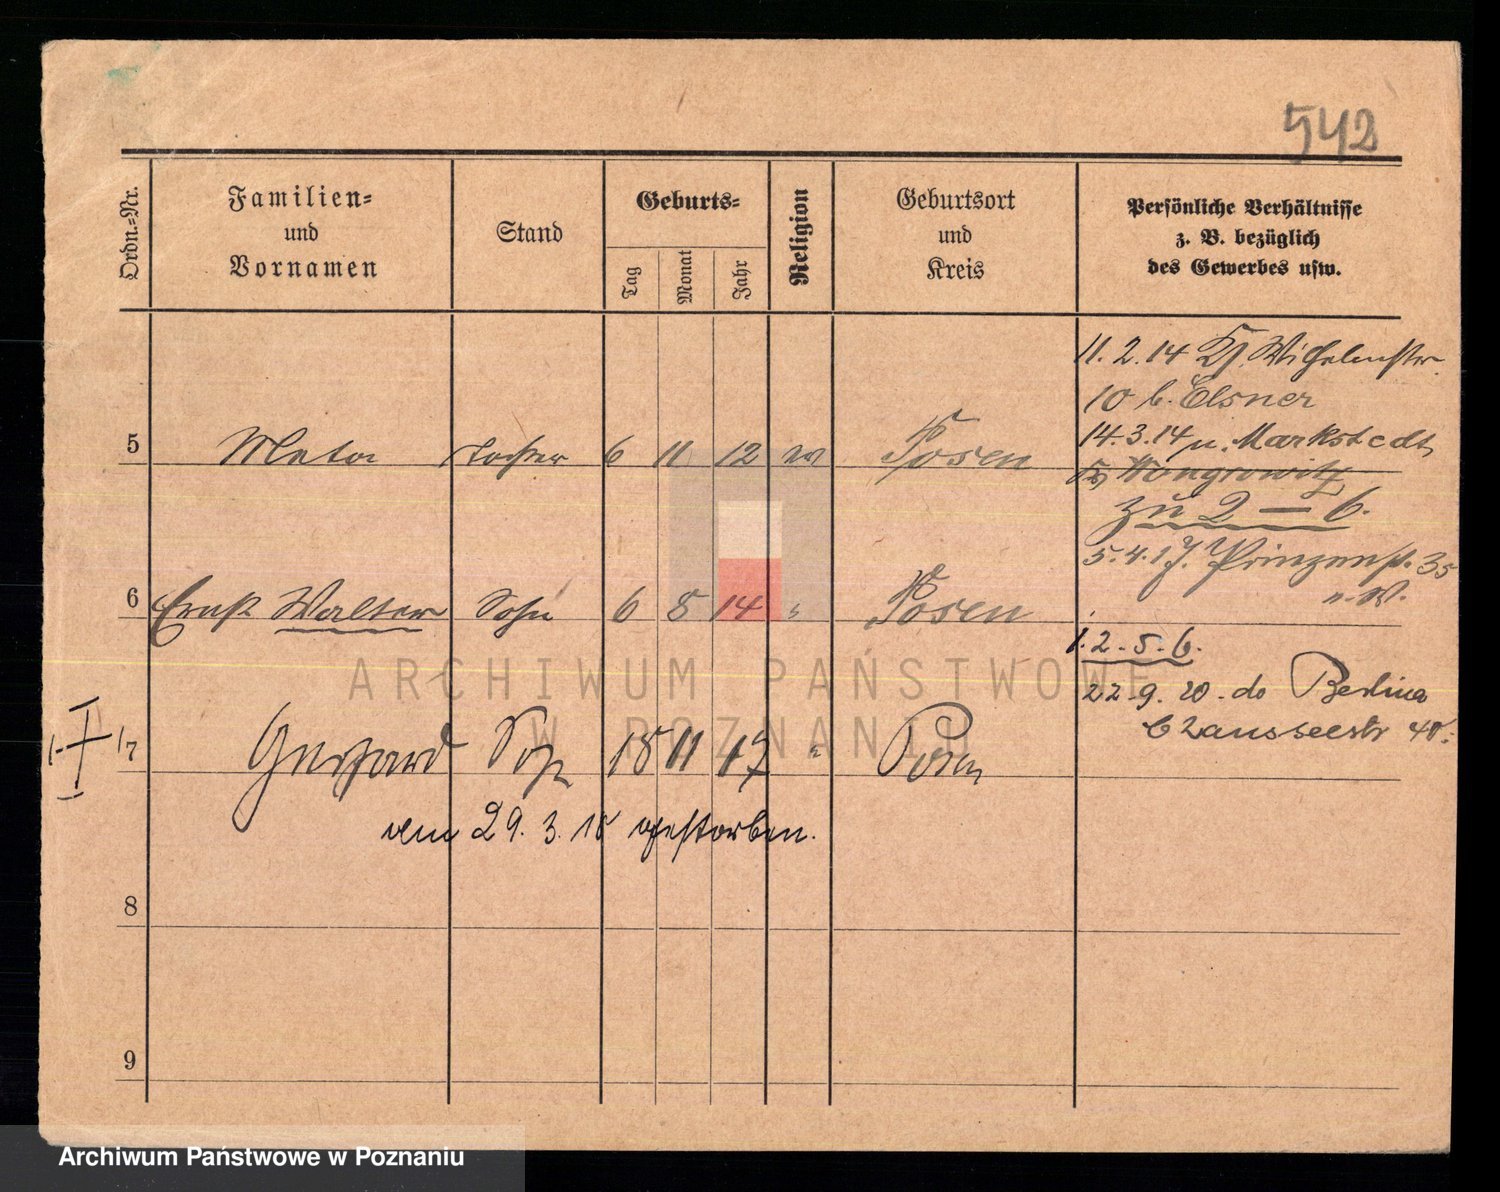 542
Ordn.-Nr.
Familien-
und
Vornamen
Stand
Geburts-
Tag
Monat
Jahr
Religion
Geburtsort
und
Kreis
Persönliche Verhältnisse
z. B. bezüglich
des Gewerbes usw.
11. 2. 14 Wilhelmstr.
10 b. Elsner
5 Meta Tochter 6 11 12 ev Posen
14. 3. 14 n. Markstedt
Wongrowitz
zu 2 — 6.
5. 4. 17. Prinzenst. 35
n. W.
6 Ernst Walter Sohn 6 8 14 " Posen
1. 2. 5. 6.
22. 9. 20. do Berlina
Chausseestr 48.
7 Gerhard Sohn 18 11 17 " Posen
am 29. 3. 18 gestorben.
8
9
ARCHIWUM PAŃSTWOWE
W POZNANIU
Archiwum Państwowe w Poznaniu